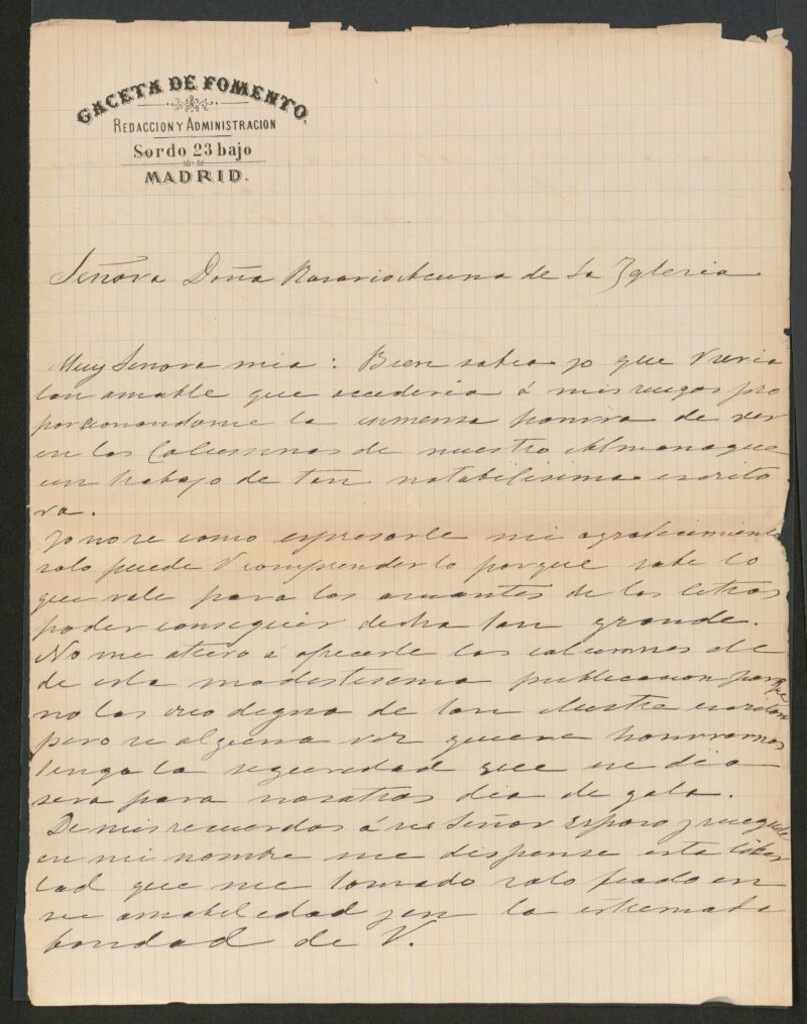 GACETA DE FOMENTO.
REDACCION Y ADMINISTRACION
Sordo 23 bajo
MADRID.
Señora Doña Rosario Acuna de La Iglesia
Muy Senora mia : Bien sabia yo que V seria
tan amable que accederia á mis ruegos pro
porcionandome la inmensa honra de ver
en las Columnas de nuestro Almanaque
un trabajo de tan notabilisima escrito
ra.
Yo no se como espresarle mi agradecimiento
solo puede V comprenderlo porque sabe lo
que vale para los amantes de las letras
poder conseguir dicha tan grande.
No me atrevo á ofrecerle las columnas de
de esta modestisima publicacion porque
no las creo digna de tan ilustre escritora
pero si alguna vez quiere honrarnos
tenga la seguridad que ese dia
sera para nosotros dia de gala.
De mis recuerdos á su Señor Esposo y ruegele
en mi nombre me dispense esta liber
tad que me tomado solo fiado en
su amabilidad y en la estremada
bondad de V.